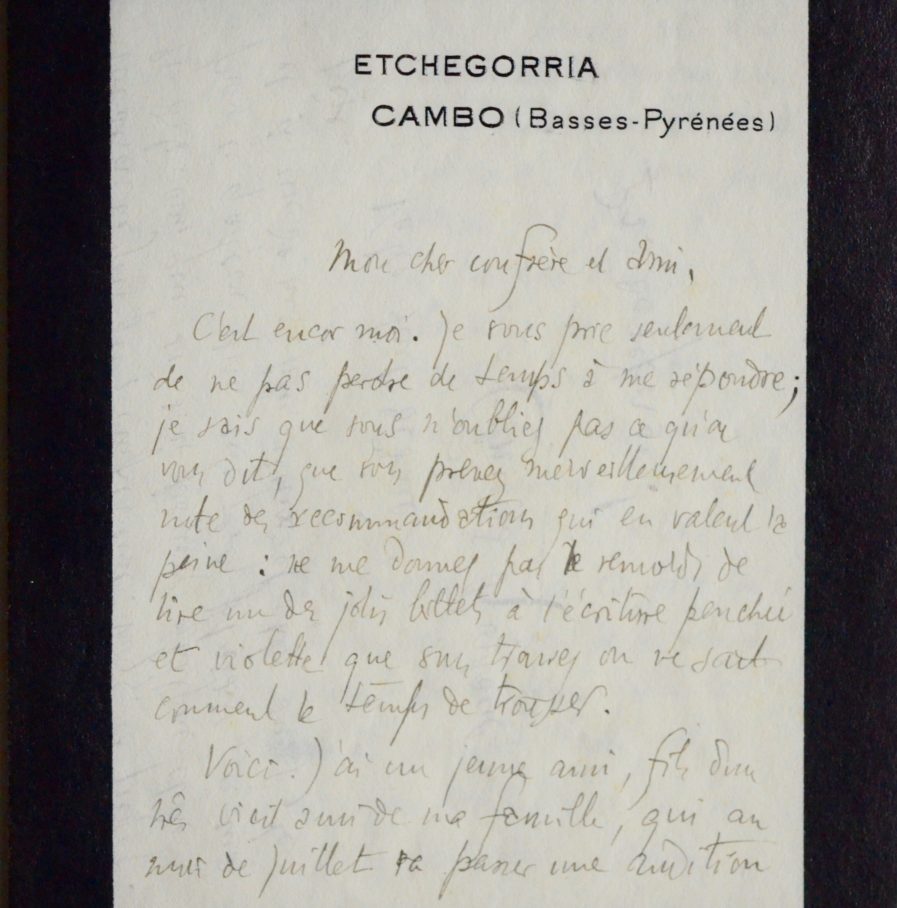 ETCHEGORRIA
CAMBO (Basses-Pyrénées)
Mon cher confrère et ami,
C'est encor moi. Je vous prie seulement
de ne pas perdre de temps à me répondre;
je sais que vous n'oubliez pas ce qu'on
vous dit, que vous prenez merveilleusement
note des recommandations qui en valent la
peine : ne me donnez pas le remords de
lire un des jolis billets à l'écriture penchée
et violette que vous trouvez on ne sait
comment le temps de
Voici. J'ai un jeune ami, fils d'un
très vieil ami de ma famille, qui au
mois de Juillet va passer une audition